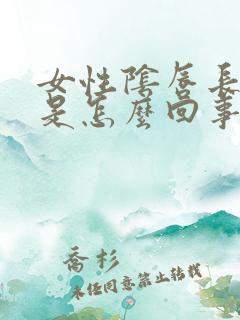 女性陰唇長
是怎麼回事
喬杉
未经同意禁止转载